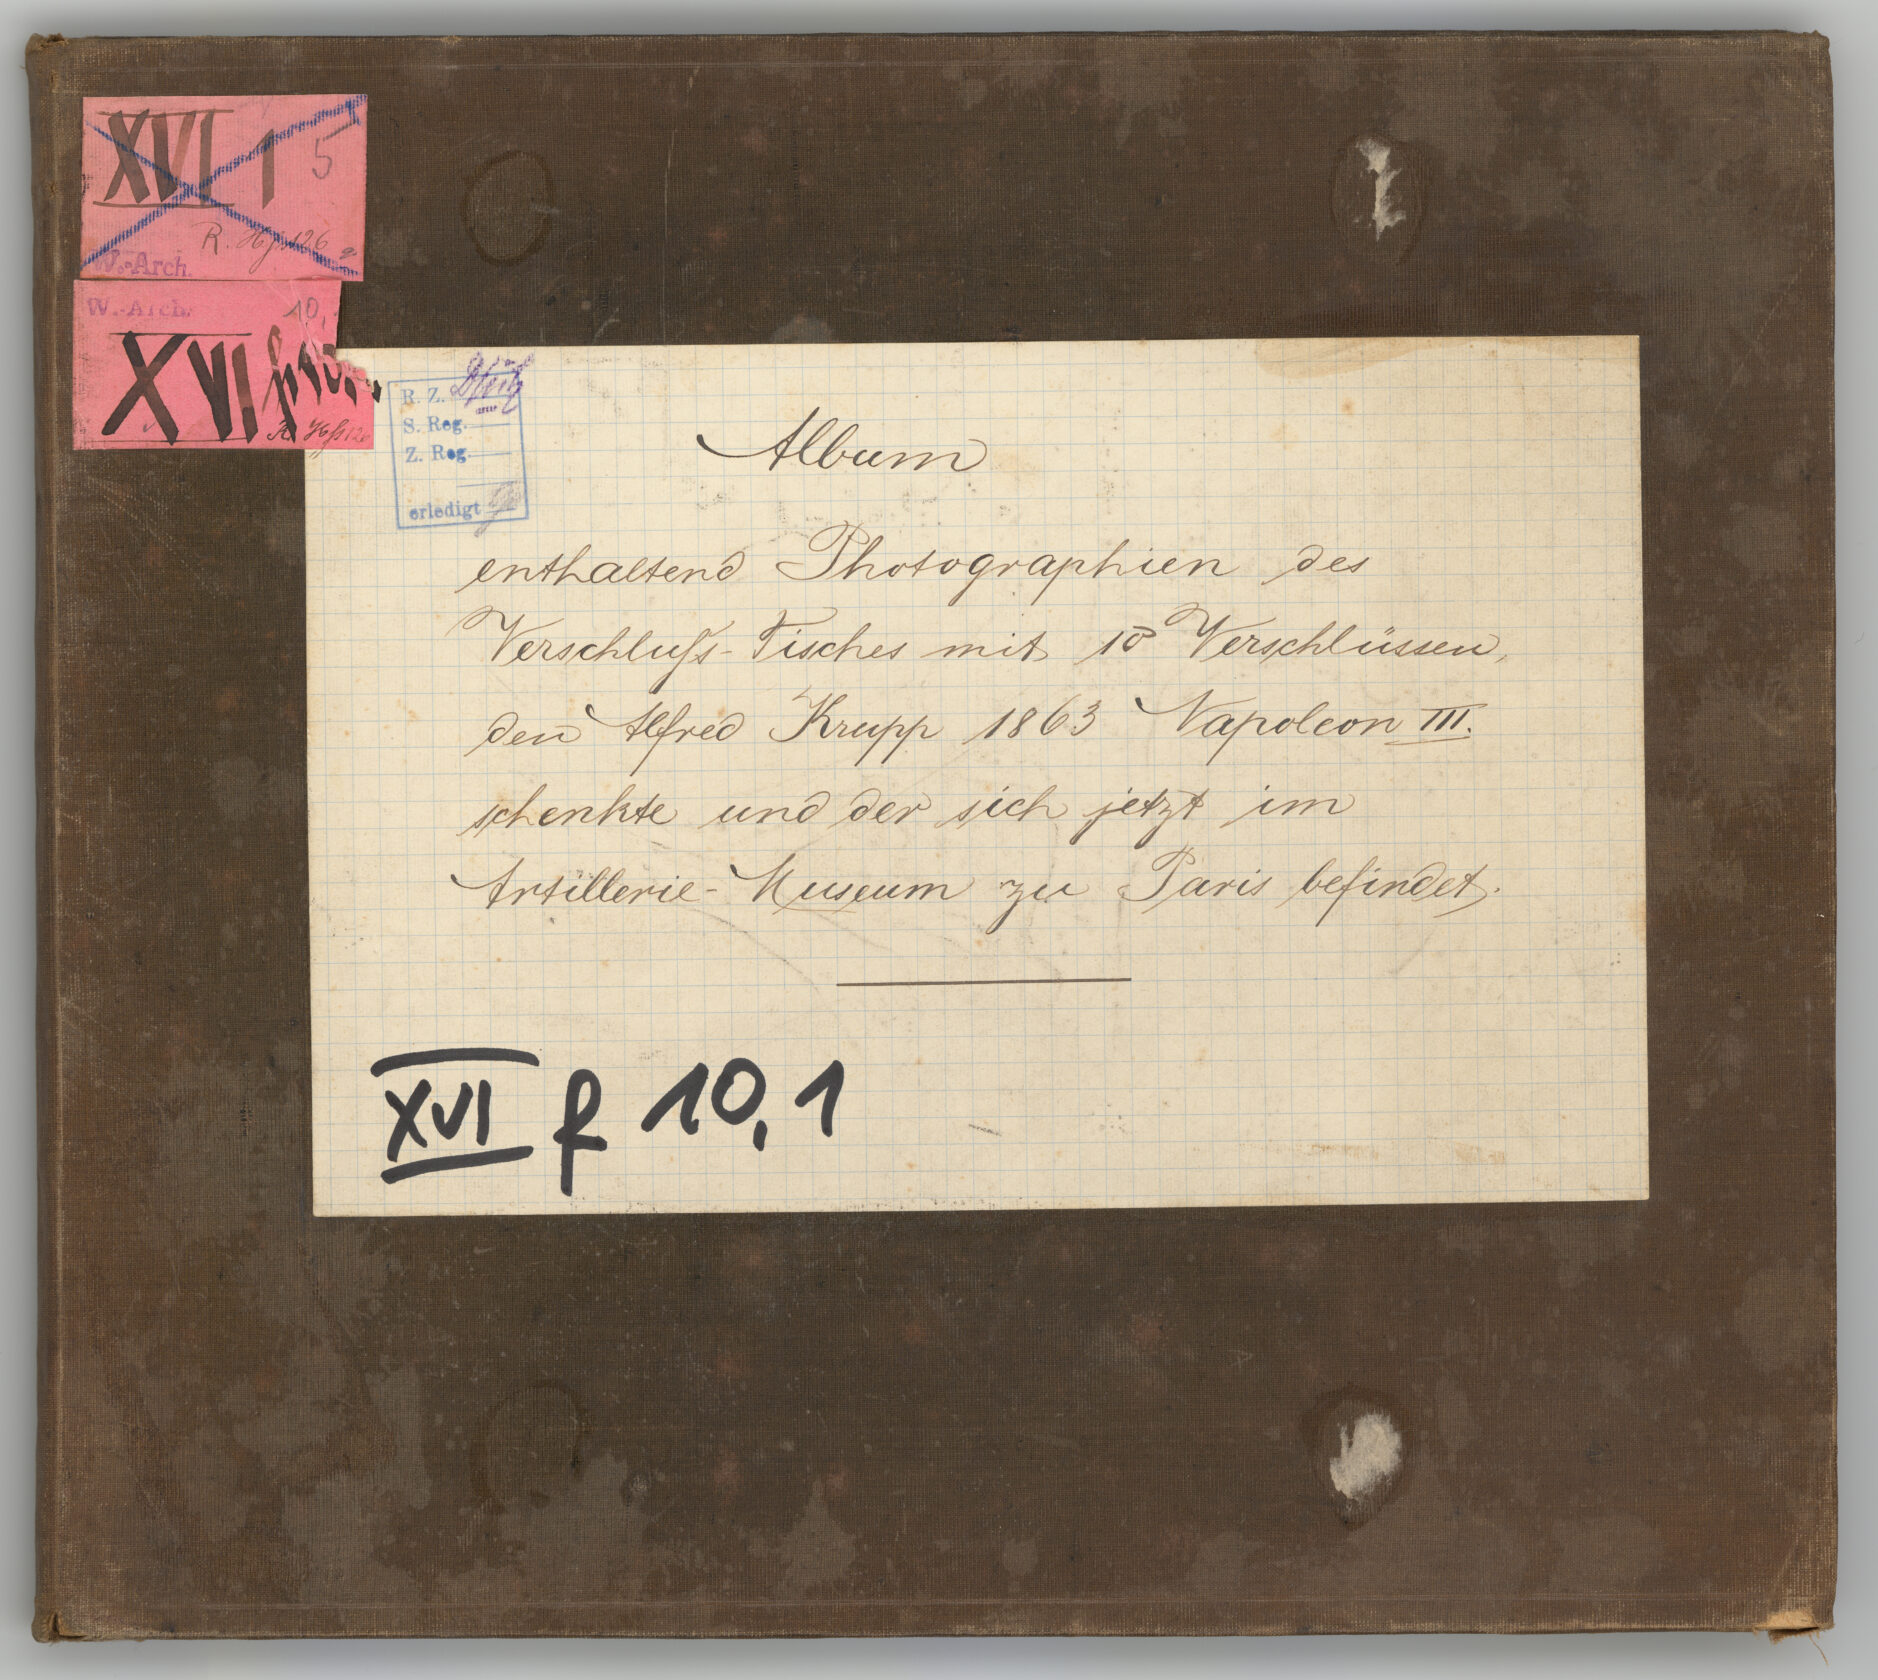 XVI 1 5
R. Hfs 126
W.-Arch.
W.-Arch. 10,
XVI f
R. Hfs 126
R. Z.
S. Reg.
Z. Reg.
erledigt
Album
enthaltend Photographien des
Verschluſs-Tisches mit 10 Verschlüssen,
den Alfred Krupp 1863 Napoleon III.
schenkte und der sich jetzt im
Artillerie-Museum zu Paris befindet.
XVI f 10,1